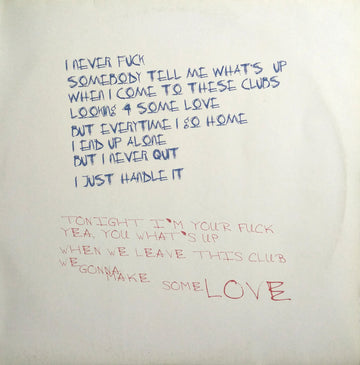 I NEVER FUCK
SOMEBODY TELL ME WHAT'S UP
WHEN I COME TO THESE CLUBS
LOOKING 4 SOME LOVE
BUT EVERYTIME I GO HOME
I END UP ALONE
BUT I NEVER QUIT
I JUST HANDLE IT
TONIGHT I'M YOUR FUCK
YEA, YOU WHAT'S UP
WHEN WE LEAVE THIS CLUB
WE GONNA MAKE SOME LOVE